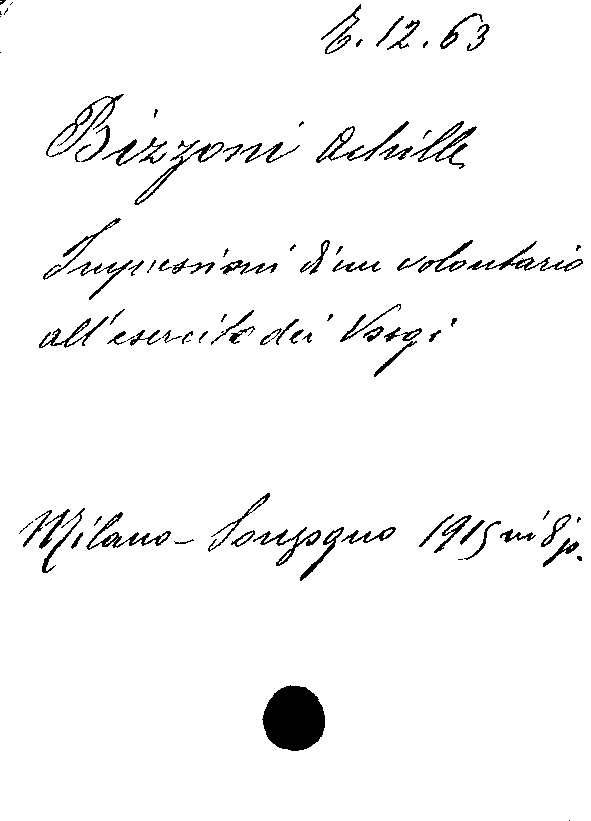 E.12.63
Bizzoni Achille
Impressioni di un volontario
all'esercito dei Vosgi
Milano - Sonzogno 1915 in 8 p.